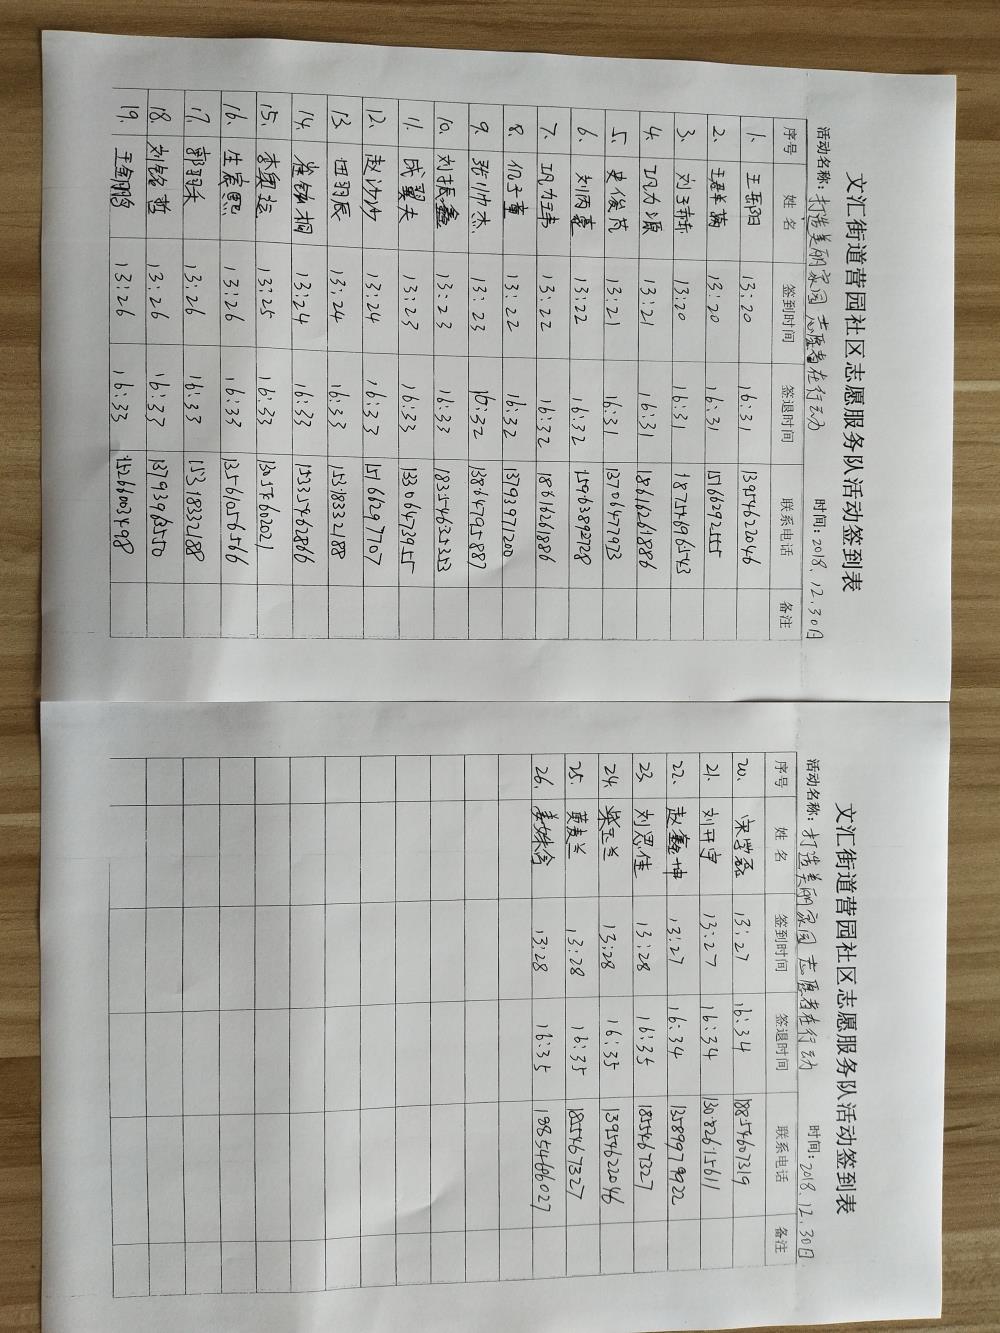 文汇街道营园社区志愿服务队活动签到表
活动名称：打造美丽家园 志愿者在行动 时间：2018.12.30日
序号 姓名 签到时间 签退时间 联系电话 备注
1. 王岳阳 13:20 16:31 13954622046
2. 13:20 16:31 15166292555
3. 13:20 16:31 18754696543
4. 巩力源 13:21 16:31 18616261886
5. 史俊芃 13:21 16:31 13706477973
6. 刘丙臺 13:22 16:32 15963892728
7. 巩力玮 13:22 16:32 18616261886
8. 仉子童 13:22 16:32 13793971200
9. 张川杰 13:23 16:32 13864795887
10. 刘振鑫 13:23 16:33 18354635353
11. 成翼夫 13:23 16:33 13306473955
12. 赵沙沙 13:24 16:33 15166297707
13 田羽辰 13:24 16:33 15318332188
14. 崔铂桐 13:24 16:33 15335462866
15. 13:25 16:33
16. 生宸熙 13:26 16:33 13561056566
17. 郭羽禾 13:26 16:33 15318332188
18. 刘铭哲 13:26 16:33 13793963550
19. 13:26 16:33 15266003498
文汇街道营园社区志愿服务队活动签到表
活动名称：打造美丽家园 志愿者在行动 时间：2018.12.30日
序号 姓名 签到时间 签退时间 联系电话 备注
20. 宋学磊 13:27 16:34 18854607319
21. 刘开宇 13:27 16:34 13082615611
22. 赵鑫坤 13:27 16:34 13589979922
23. 刘思佳 13:28 16:35 1855467327
24. 柴玉兰 13:28 16:35 13954622046
25. 黄麦兰 13:28 16:35 1855467327
26. 13:28 16:35 19854606027